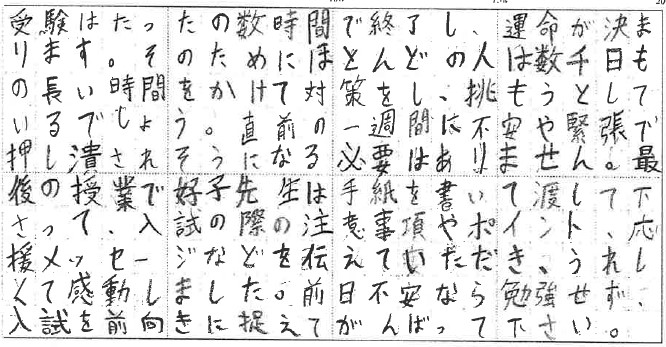 受験はたったの数時間で終了し、運命が決ま
ります。そのためにほとんどの人は数千日も
の長い時間をかけて対策をし、挑もうとして
いるでしょう。直前の一週間に不安や緊張で
押し潰されそうになる必要はありません。最
後の授業で好子先生は手紙を書いて渡して下
さって、入試の際の注意事項やポイント、応
援メッセージなどを伝えていただき、うれし
くて感動しました。前日不安なら勉強せず、
入試を前向きに捉えてがんばって下さい。